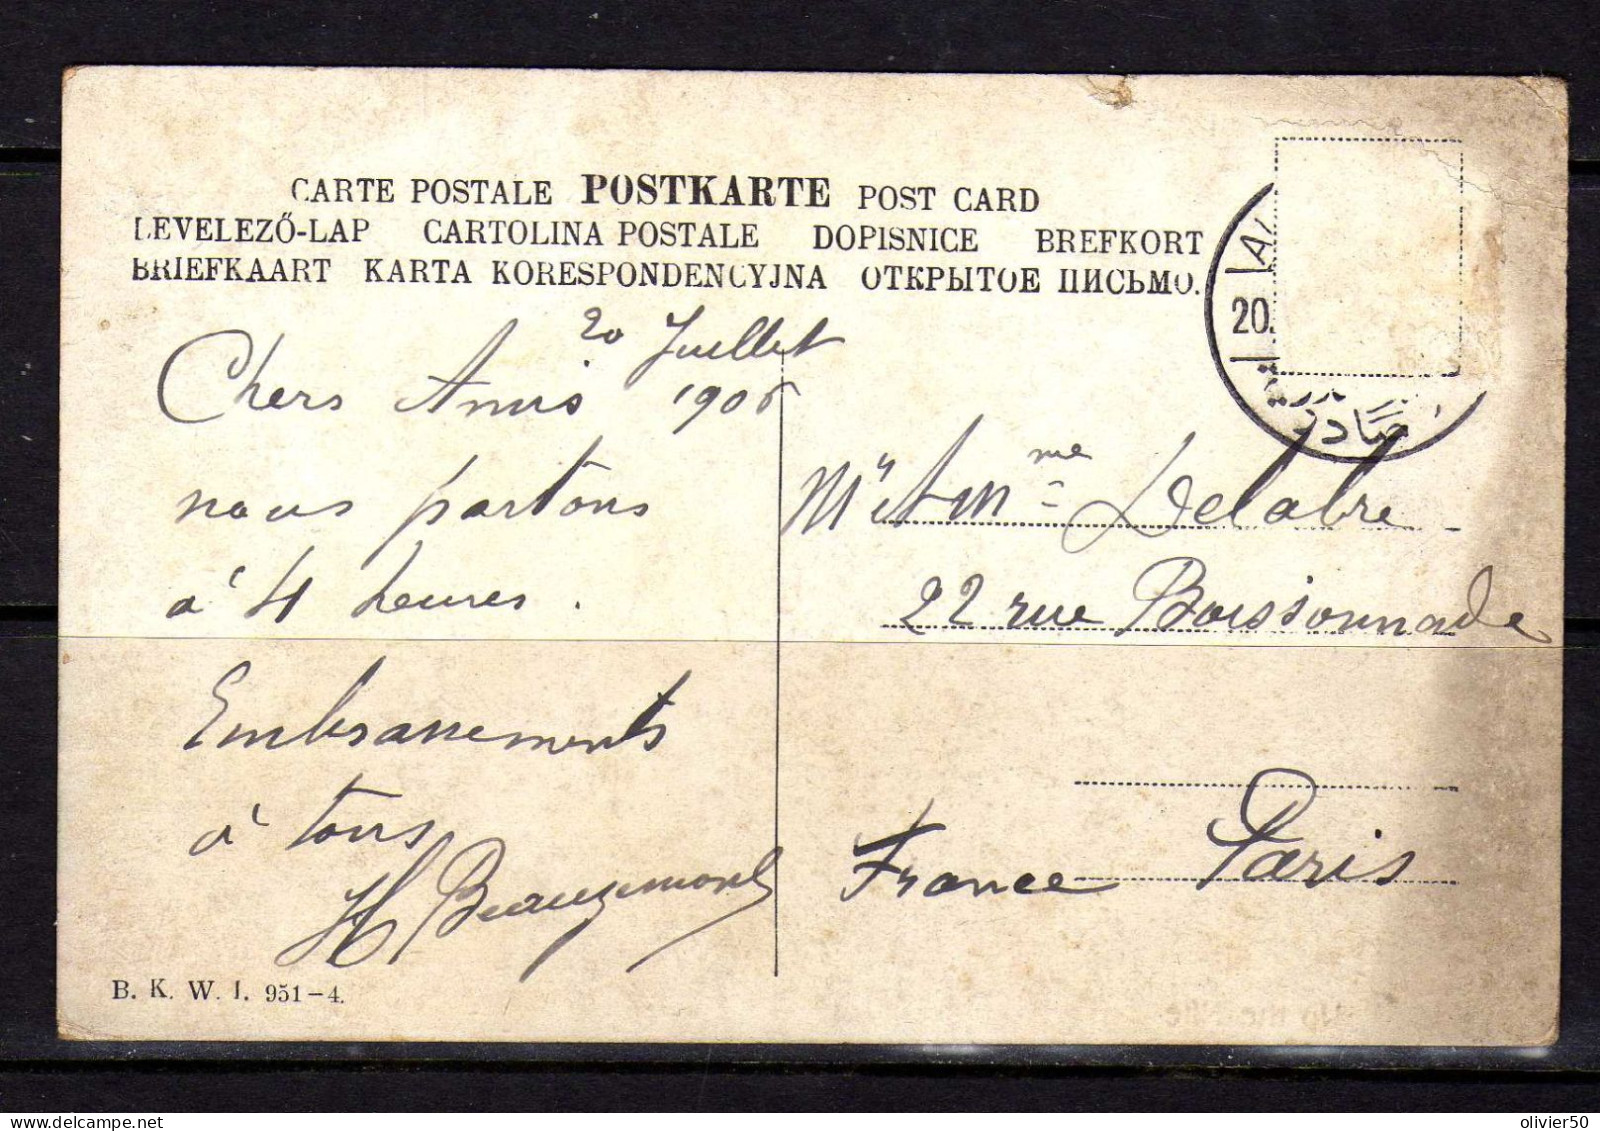 CARTE POSTALE POSTKARTE POST CARD
LEVELEZŐ-LAP CARTOLINA POSTALE DOPISNICE BREFKORT
BRIEFKAART KARTA KORESPONDENCYJNA ОТКРЫТОЕ ПИСЬМО.
20.
20 Juillet
Chers Amis 1906
nous partons
à 4 heures.
Embrassements
à tous
H Beaugemont
B. K. W. I. 951-4.
Mr et Mme Delabre
22 rue Boissonnade
Paris
France
olivier50